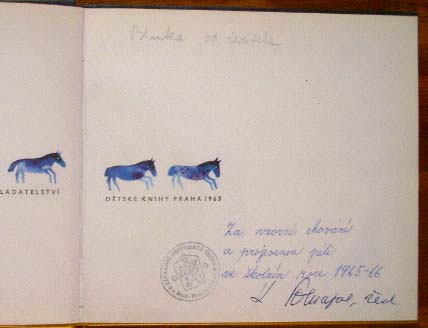 Blanka od ředitele
LADATELSTVÍ
DĚTSKÉ KNIHY PRAHA 1965
Za vzorné chování
a projevenou píli
ve školním roce 1965-66
řed